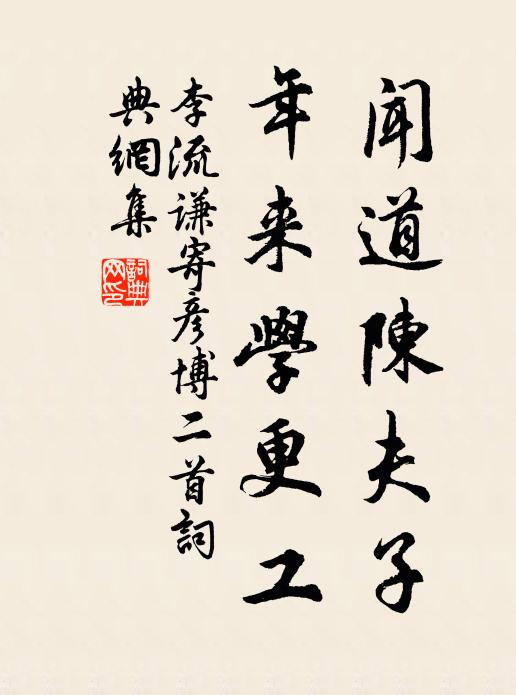 聞道陳夫子
年来學更工
李流謙寄彦博二首詞
典網集
詞典
网印